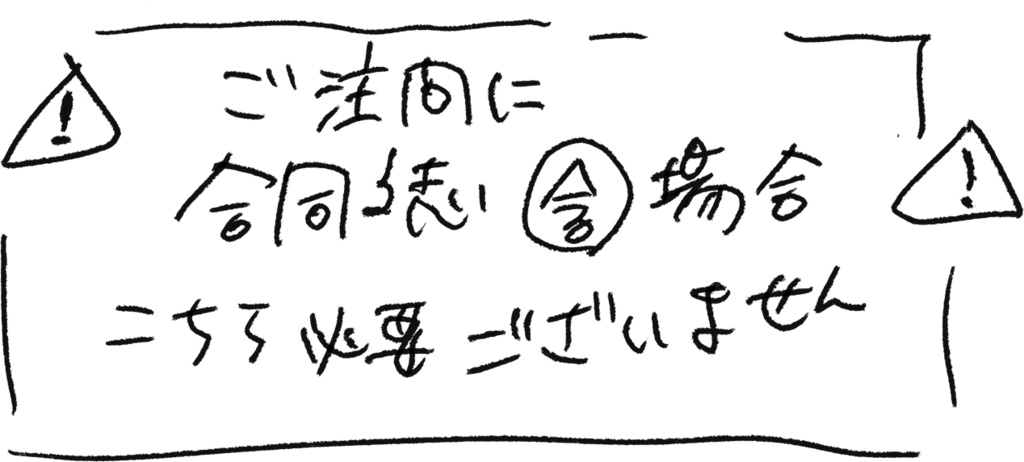 ご注向に
合同続い 合 場合
こちら必要ございません